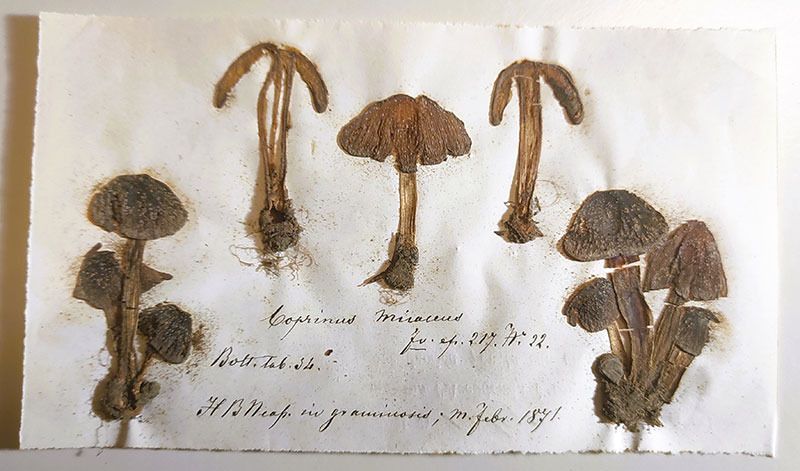 Coprinus micaceus
fr. ep. 247. N. 22.
Bolt. tab. 54.
H B Neap. in graminosis; m. febr. 1871.